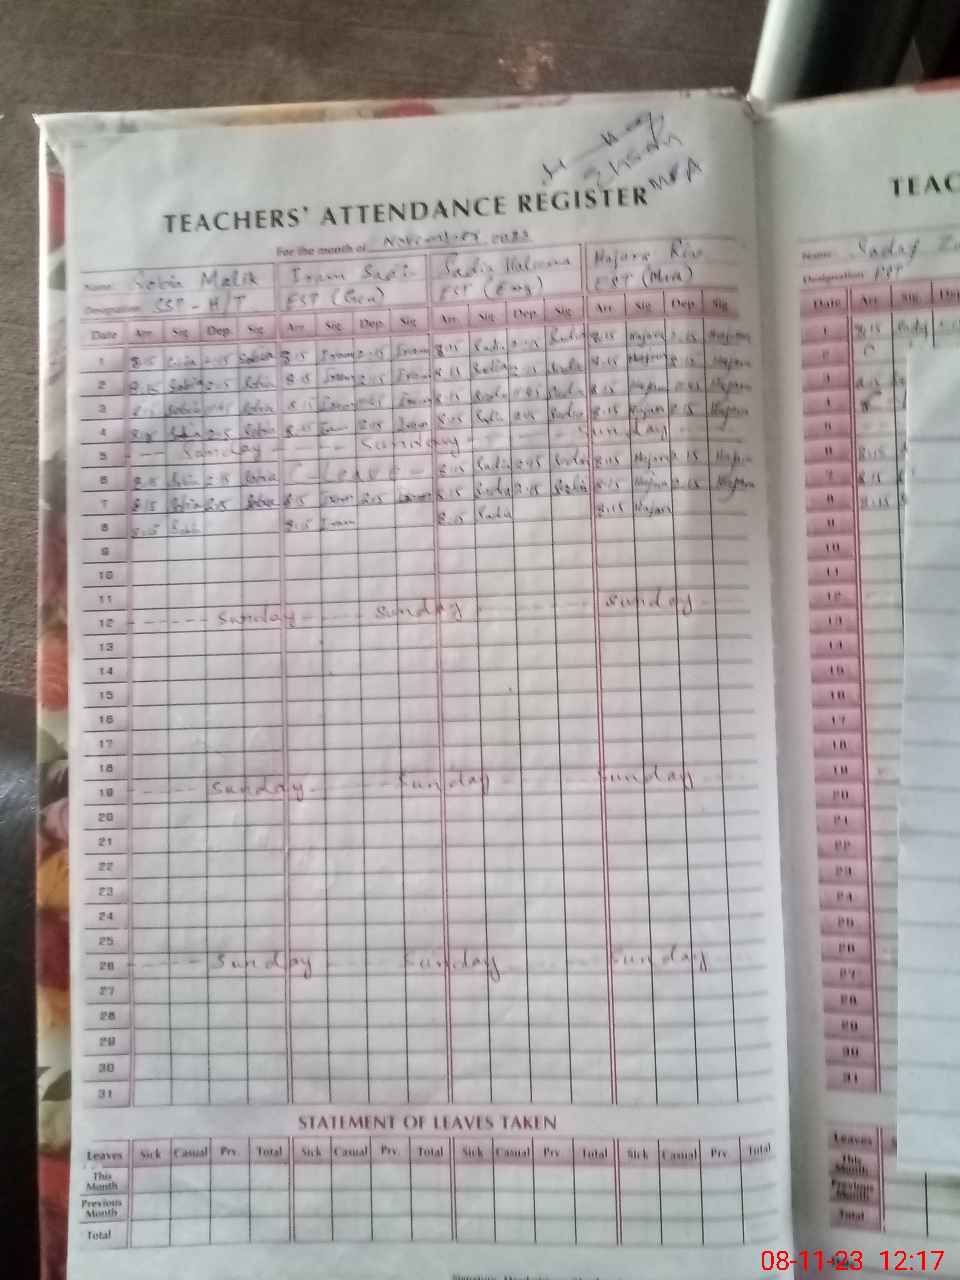 Ehsan
MEA
TEACHERS' ATTENDANCE REGISTER
TEAC
For the month of November 2023
Name: Sobia Malik Iram Sadia Haleema Hajara Name: Sadaf
Designation SST - H/T EST (Gen) EST (Eng) EST (Mea) Designation PET
Date Arr. Sig. Dep. Sig. Arr. Sig. Dep. Sig. Arr. Sig. Dep. Sig. Arr. Sig. Dep. Sig. Date Arr. Sig. Dep
1 8:15 Sobia 2:15 Sobia 8:15 Iram 2:15 Iram 8:15 Sadia 2:15 Sadia 8:15 Hajara 2:15 Hajara 1 8:15 Sadaf
2 8:15 Sobia 2:15 Sobia 8:15 Iram 2:15 Iram 8:15 Sadia 2:15 Sadia 8:15 Hajara 2:15 Hajara 2
3 8:15 Sobia Sobia 8:15 Iram Iram 8:15 Sadia Sadia 8:15 Hajara Hajara 3 8:15
4 8:15 Sobia 2:15 Sobia 8:15 Iram 2:15 Iram 8:15 Sadia 2:15 Sadia 8:15 Hajara 2:15 Hajara 4
5 Sunday Sunday Sunday 5
6 8:15 Sobia 2:15 Sobia C-Leave 8:15 Sadia 2:15 Sadia 8:15 Hajara 2:15 Hajara 6 8:15
7 8:15 Sobia 2:15 Sobia 8:15 Iram 2:15 Iram 8:15 Sadia 2:15 Sadia 8:15 Hajara 2:15 Hajara 7 8:15
8 8:15 Sobia 8:15 Iram 8:15 Sadia 8:15 Hajara 8 8:15
9 9
10 10
11 11
12 Sunday Sunday Sunday 12
13 13
14 14
15 15
16 16
17 17
18 18
19 Sunday Sunday Sunday 19
20 20
21 21
22 22
23 23
24 24
25 25
26 Sunday Sunday Sunday 26
27 27
28 28
29 29
30 30
31 31
STATEMENT OF LEAVES TAKEN
Leaves Sick Casual Prv. Total Sick Casual Prv. Total Sick Casual Prv. Total Sick Casual Prv. Total Leaves
This Month This Month
Previous Month Previous Month
Total Total
08-11-23 12:17